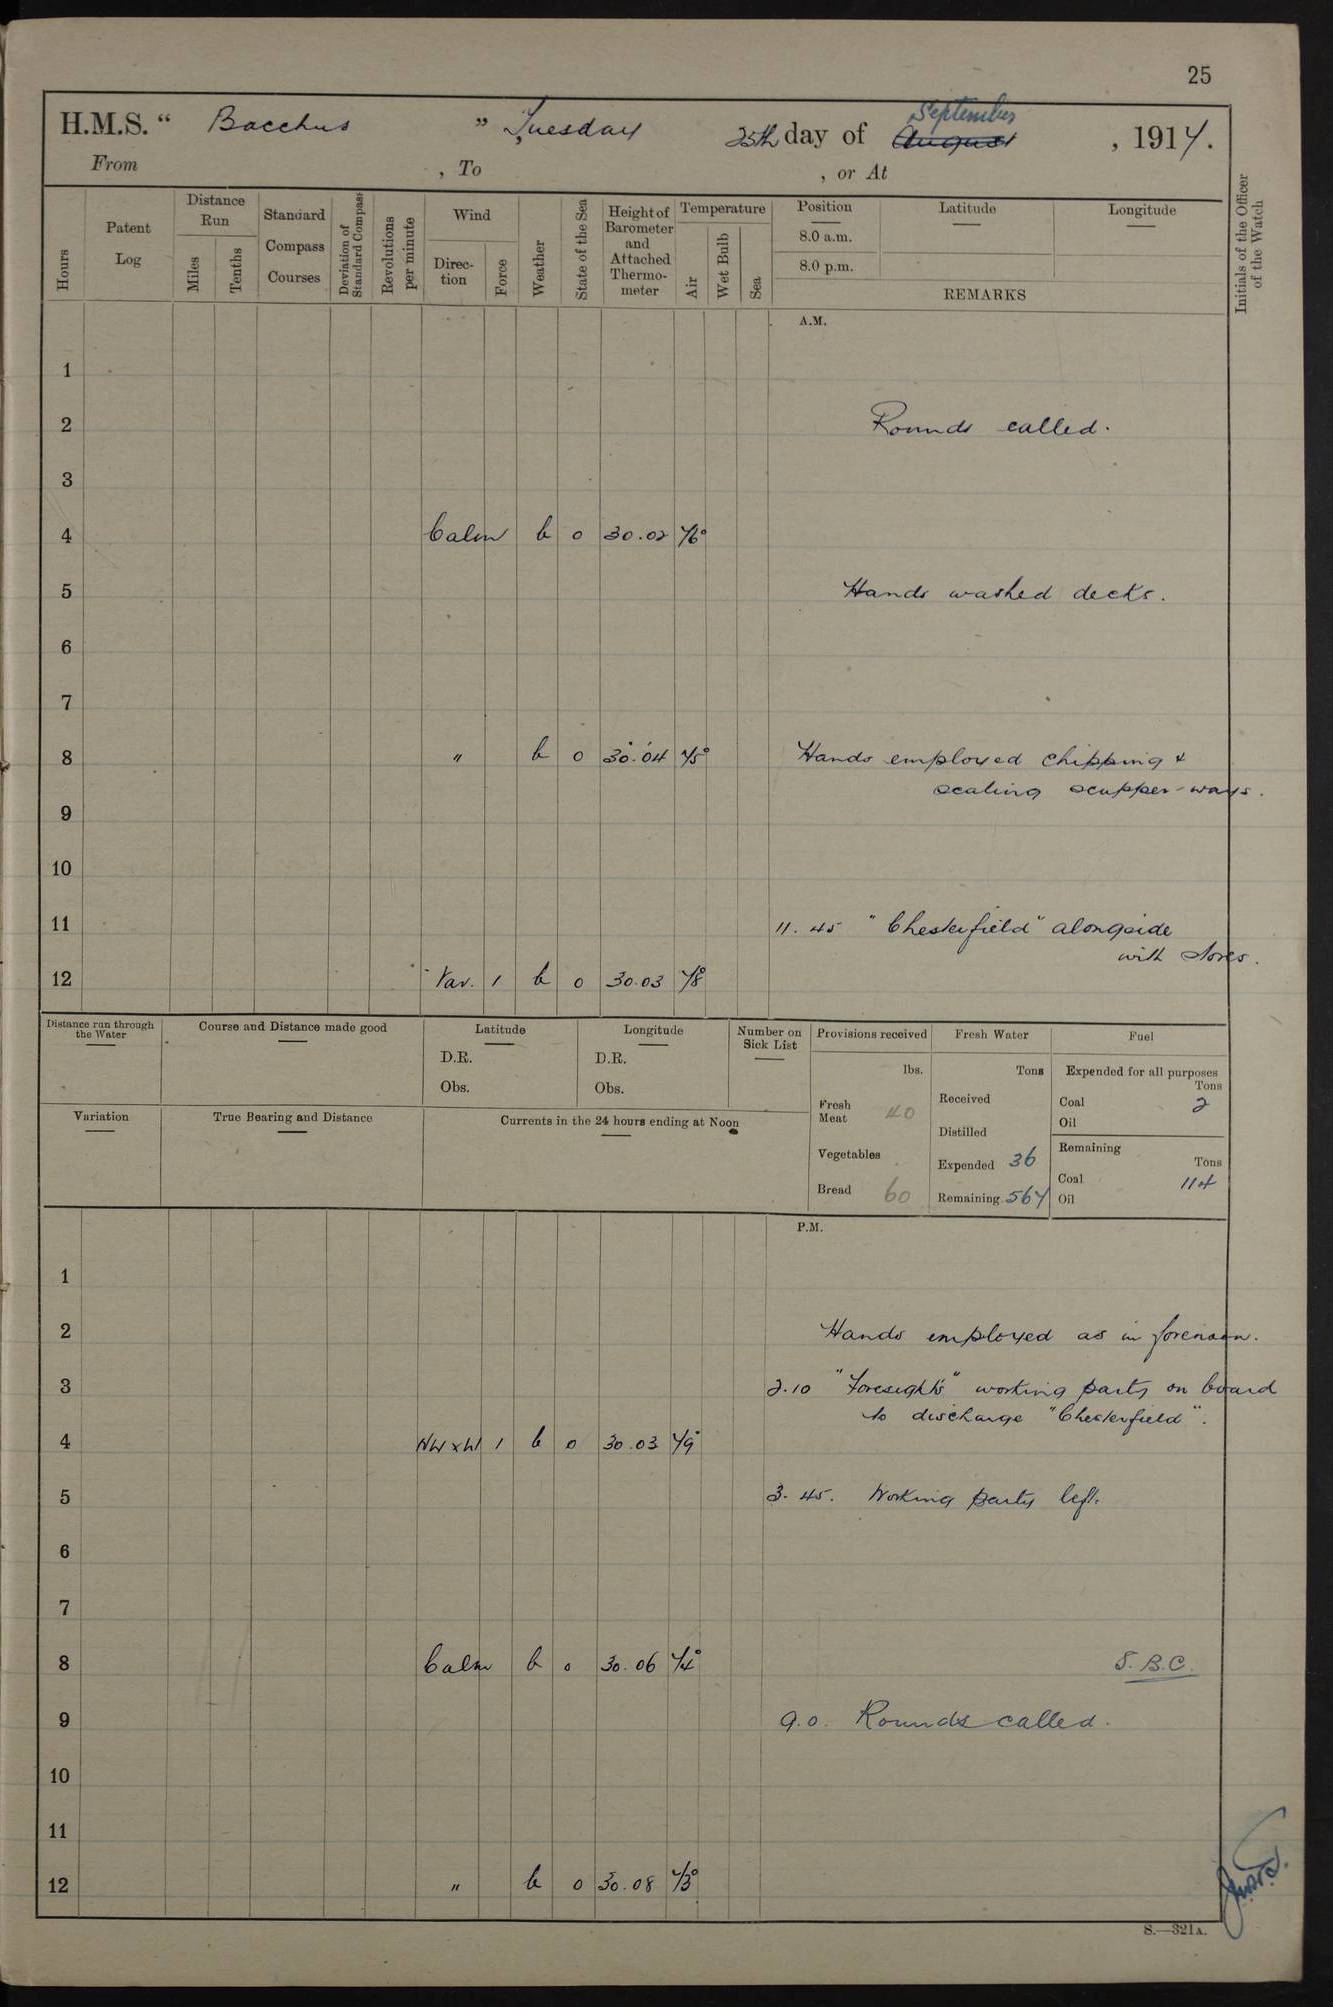 25
H.M.S. “ Bacchus ” Tuesday 25th day of August September , 1917.
From , To , or At
Hours
Patent Log
Distance Run
Miles
Tenths
Standard Compass Courses
Deviation of Standard Compass
Revolutions per minute
Wind
Direction
Force
Weather
State of the Sea
Height of Barometer and Attached Thermometer
Temperature
Air
Wet Bulb
Sea
Position
Latitude
Longitude
8.0 a.m.
8.0 p.m.
REMARKS
Initials of the Officer of the Watch
A.M.
1
2 Rounds called.
3
4 Calm b 0 30.02 76°
5 Hands washed decks.
6
7
8 " b 0 30.04 75° Hands employed chipping &
scaling scupper-ways.
9
10
11 11.45 "Chesterfield" alongside
with stores.
12 Var. 1 b 0 30.03 78°
Distance run through the Water
Course and Distance made good
Latitude
D.R.
Obs.
Longitude
D.R.
Obs.
Number on Sick List
Provisions received
lbs.
Fresh Meat 40
Vegetables
Bread 60
Fresh Water
Tons
Received
Distilled
Expended 36
Remaining 567
Fuel
Expended for all purposes
Tons
Coal 2
Oil
Remaining
Tons
Coal 114
Oil
Variation
True Bearing and Distance
Currents in the 24 hours ending at Noon
P.M.
1
2 Hands employed as in forenoon.
3 2.10 "Foresight's" working party on board
to discharge "Chesterfield".
4 NWxW 1 b 0 30.03 79°
5 3.45. Working party left.
6
7
8 Calm b 0 30.06 74° S.B.C.
9 9.0. Rounds called.
10
11
12 " b 0 30.08 73°
S.—321A.